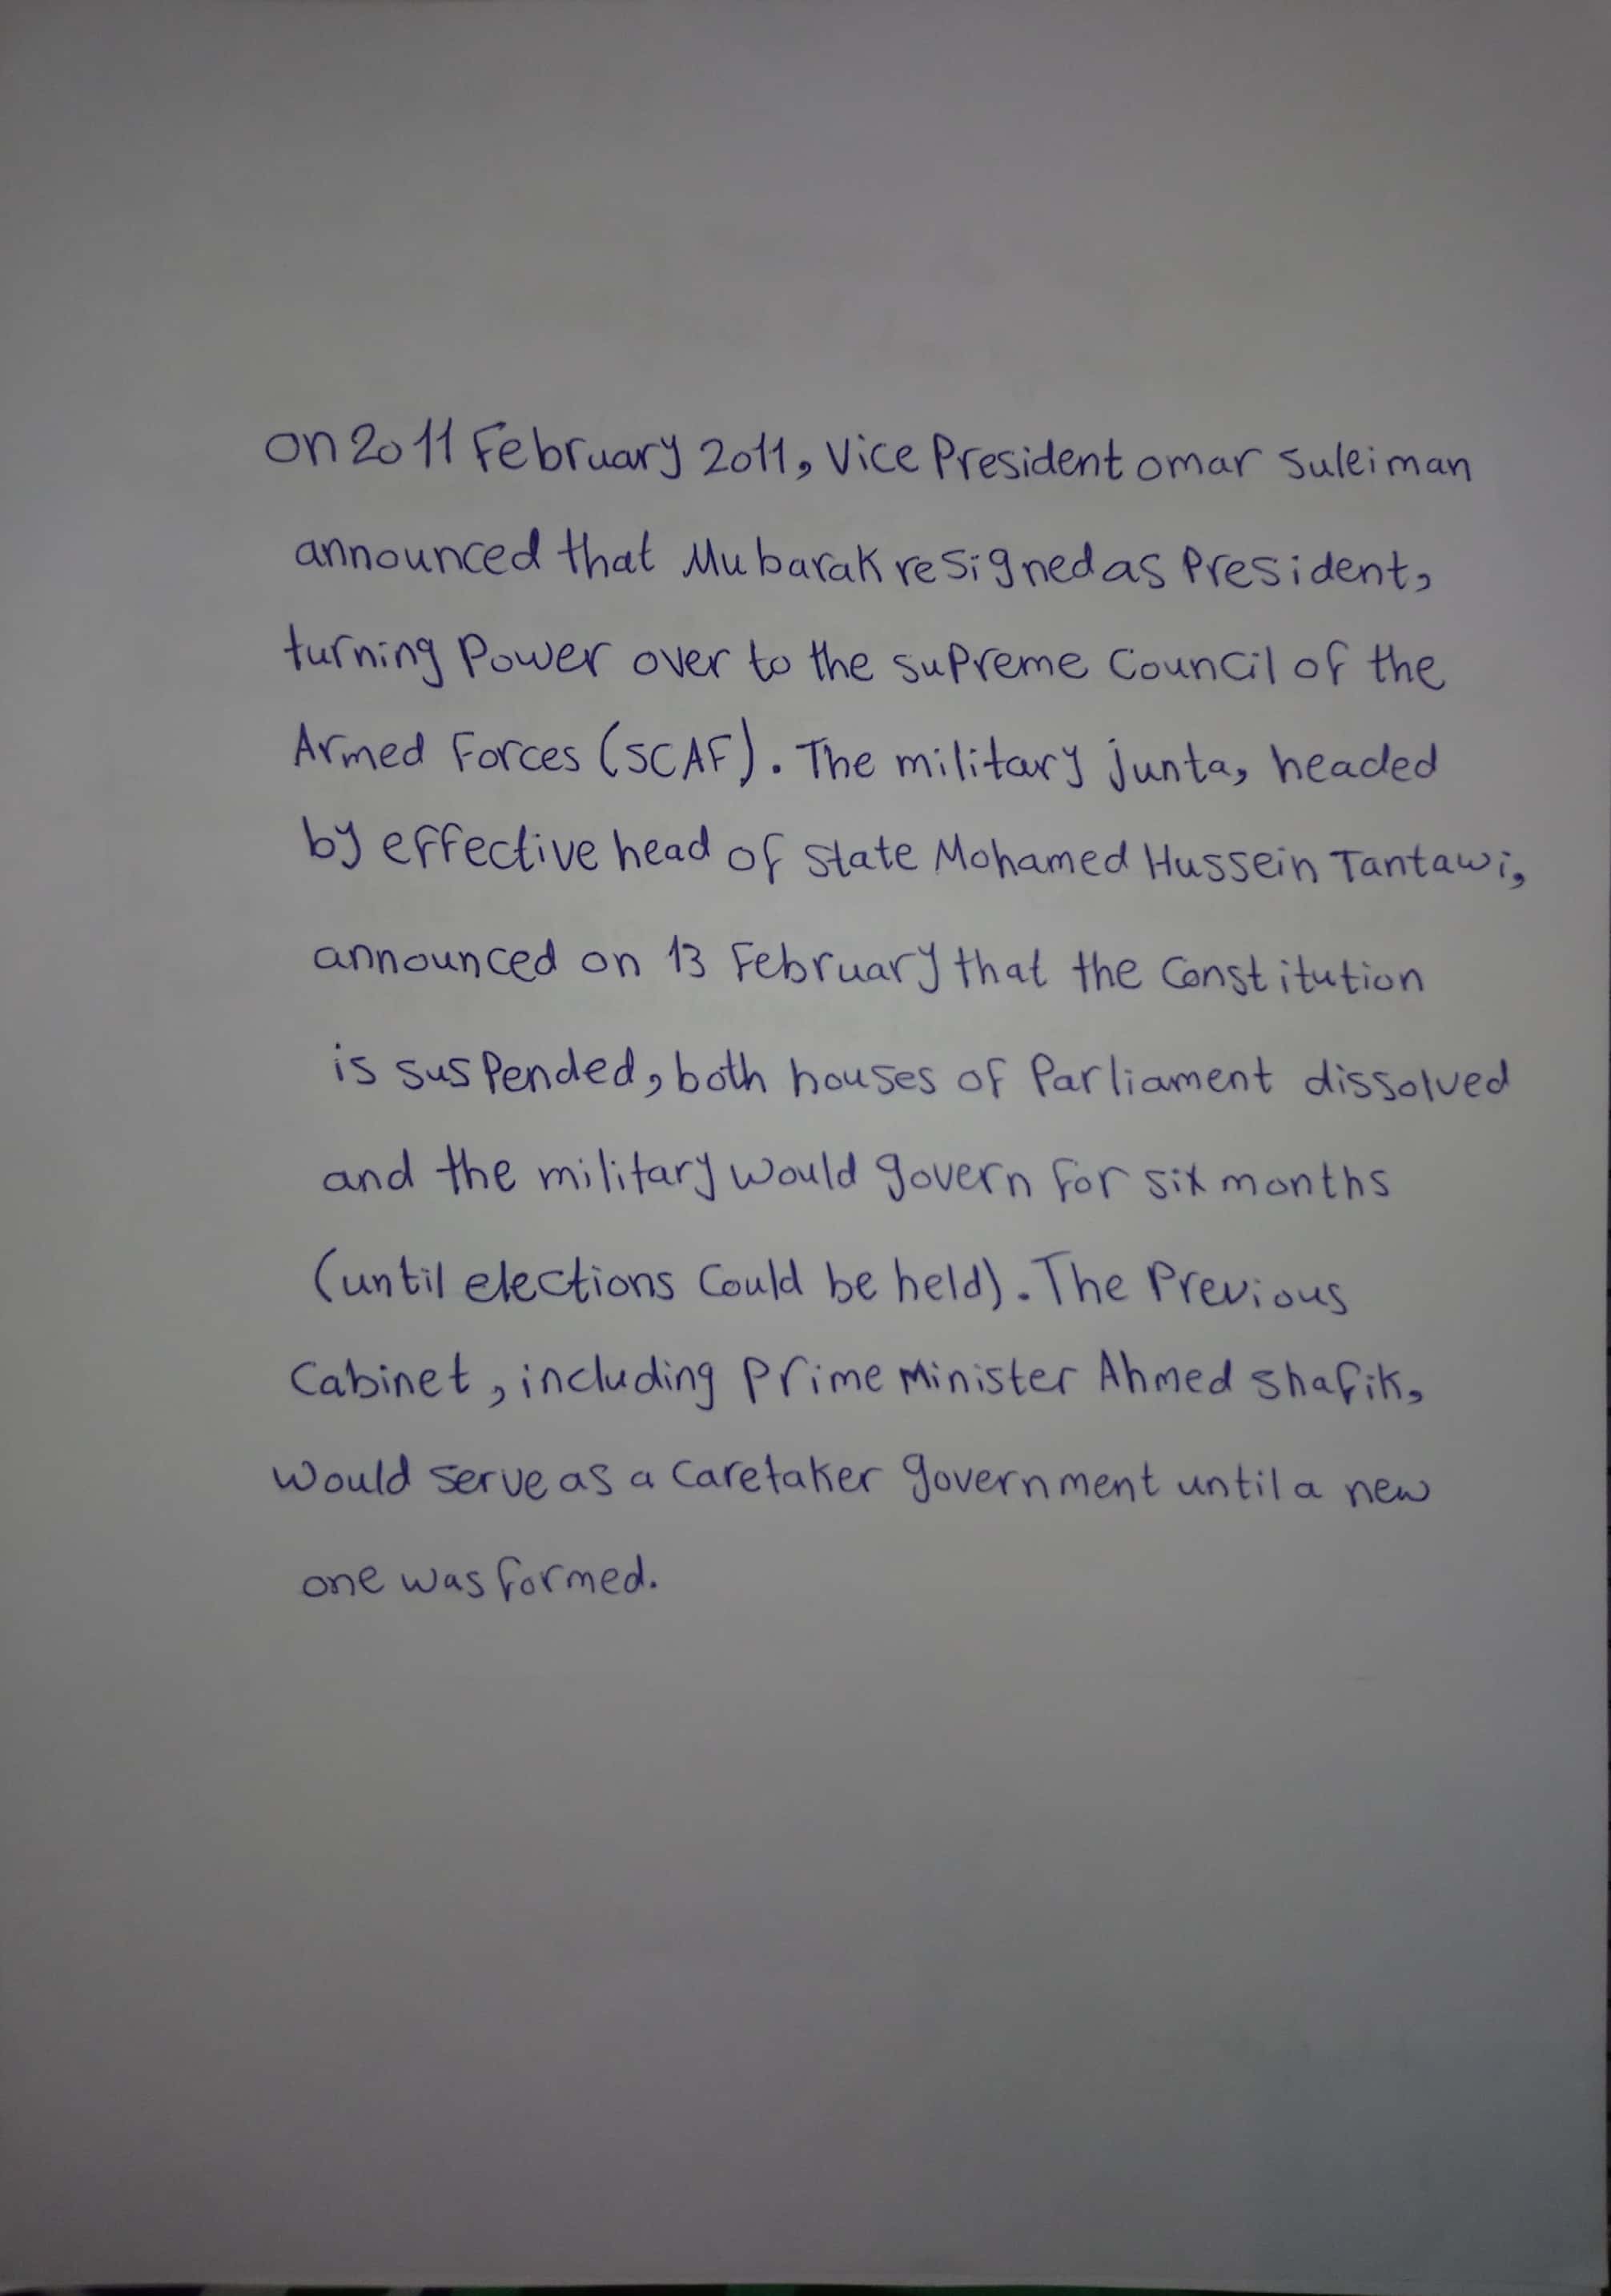 on 2011 February 2011, Vice President omar suleiman
announced that Mubarak resigned as President,
turning Power over to the supreme Council of the
Armed Forces (SCAF). The military junta, headed
by effective head of state Mohamed Hussein Tantawi,
announced on 13 February that the Constitution
is suspended, both houses of Parliament dissolved
and the military would govern for six months
(until elections Could be held). The Previous
Cabinet, including Prime Minister Ahmed shafik,
would serve as a caretaker government until a new
one was formed.